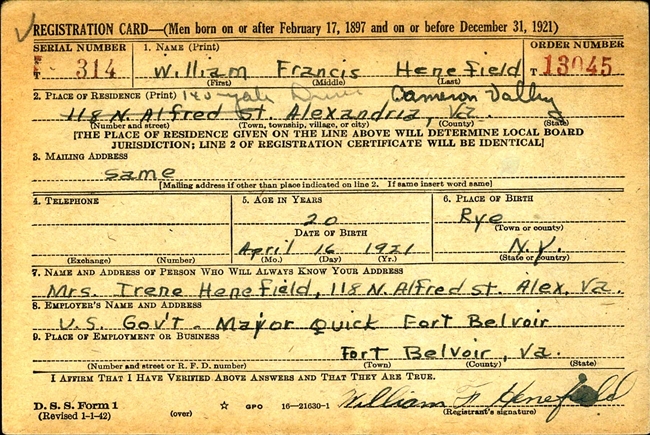 REGISTRATION CARD—(Men born on or after February 17, 1897 and on or before December 31, 1921)
SERIAL NUMBER 1. NAME (Print) ORDER NUMBER
T 314 William Francis Henefield T 13045
(First) (Middle) (Last)
2. PLACE OF RESIDENCE (Print) 140 Yale Drive Cameron Valley
118 N. Alfred St. Alexandria, Va.
(Number and street) (Town, township, village, or city) (County) (State)
[THE PLACE OF RESIDENCE GIVEN ON THE LINE ABOVE WILL DETERMINE LOCAL BOARD
JURISDICTION; LINE 2 OF REGISTRATION CERTIFICATE WILL BE IDENTICAL]
3. MAILING ADDRESS
Same
[Mailing address if other than place indicated on line 2. If same insert word same]
4. TELEPHONE 5. AGE IN YEARS 6. PLACE OF BIRTH
20 Rye
DATE OF BIRTH (Town or county)
April 16 1921 N.Y.
(Exchange) (Number) (Mo.) (Day) (Yr.) (State or country)
7. NAME AND ADDRESS OF PERSON WHO WILL ALWAYS KNOW YOUR ADDRESS
Mrs. Irene Henefield, 118 N. Alfred St. Alex, Va.
8. EMPLOYER'S NAME AND ADDRESS
U.S. Gov't - Major Quick Fort Belvoir
9. PLACE OF EMPLOYMENT OR BUSINESS
Fort Belvoir, Va.
(Number and street or R. F. D. number) (Town) (County) (State)
I AFFIRM THAT I HAVE VERIFIED ABOVE ANSWERS AND THAT THEY ARE TRUE.
D. S. S. Form 1
(Revised 1-1-42) (over) ☆ GPO 16—21630-1 William F. Henefield
(Registrant's signature)